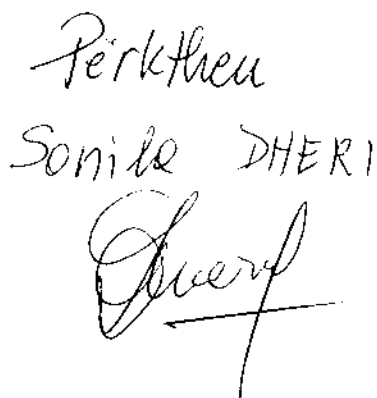 Përktheu
Sonila DHERI